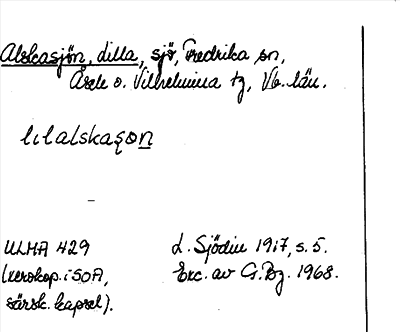 Alskasjön, lilla, sjö, Fredrika sn,
Åsele o. Vilhelmina tg, Vb. län.
lılalskaʂon
ULMA 429
(xerokop. i SOA,
särsk. kapsel).
L. Sjödin 1917, s. 5.
Exc. av G. Bg. 1968.